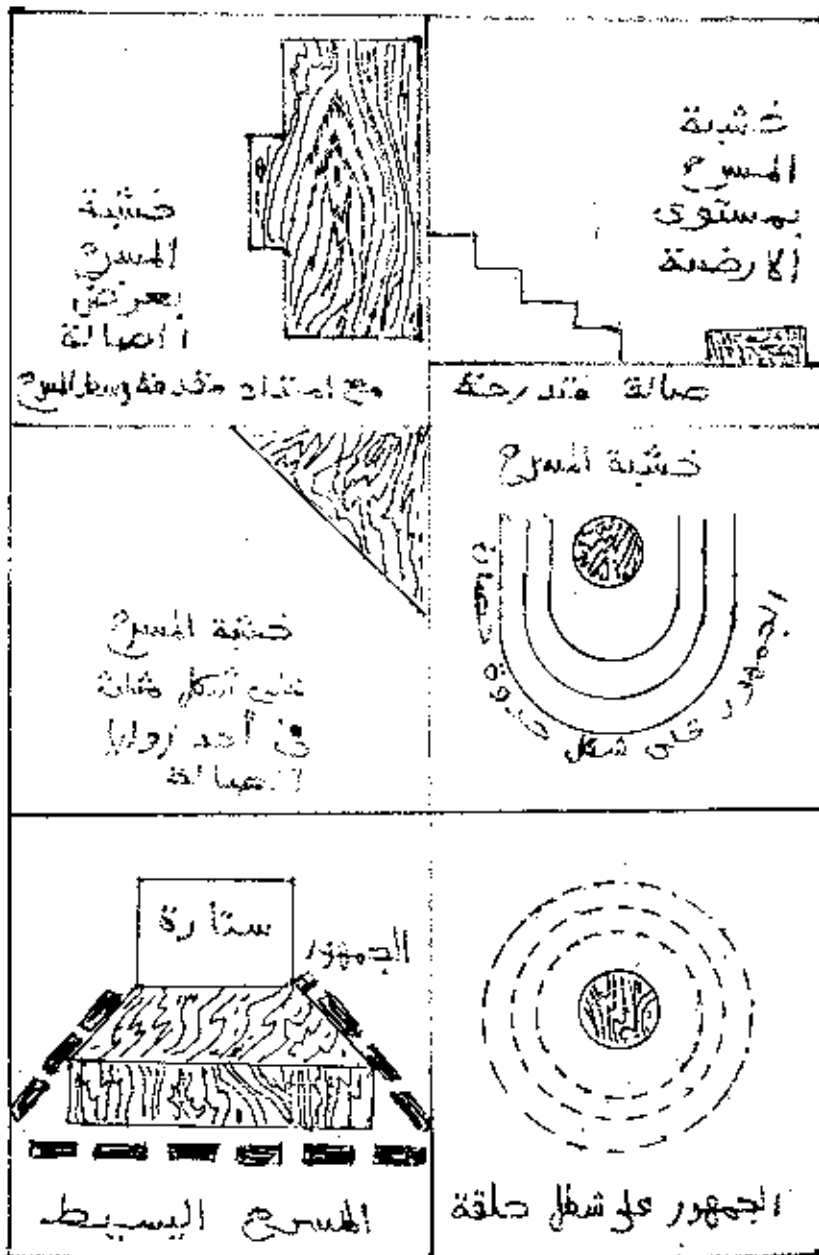 خشبة
المسرح
بمستوى
الارضية
صالة متدرجة
خشبة
المسرح
بعرض
الصالة
مع امتداد مقدمة وسط المسرح
خشبة المسرح
الجمهور على شكل حدوة حصان
خشبة المسرح
على شكل مثلث
في أحد زوايا
الصالة
الجمهور على شكل حلقة
ستارة
الجمهور
المسرح البسيط